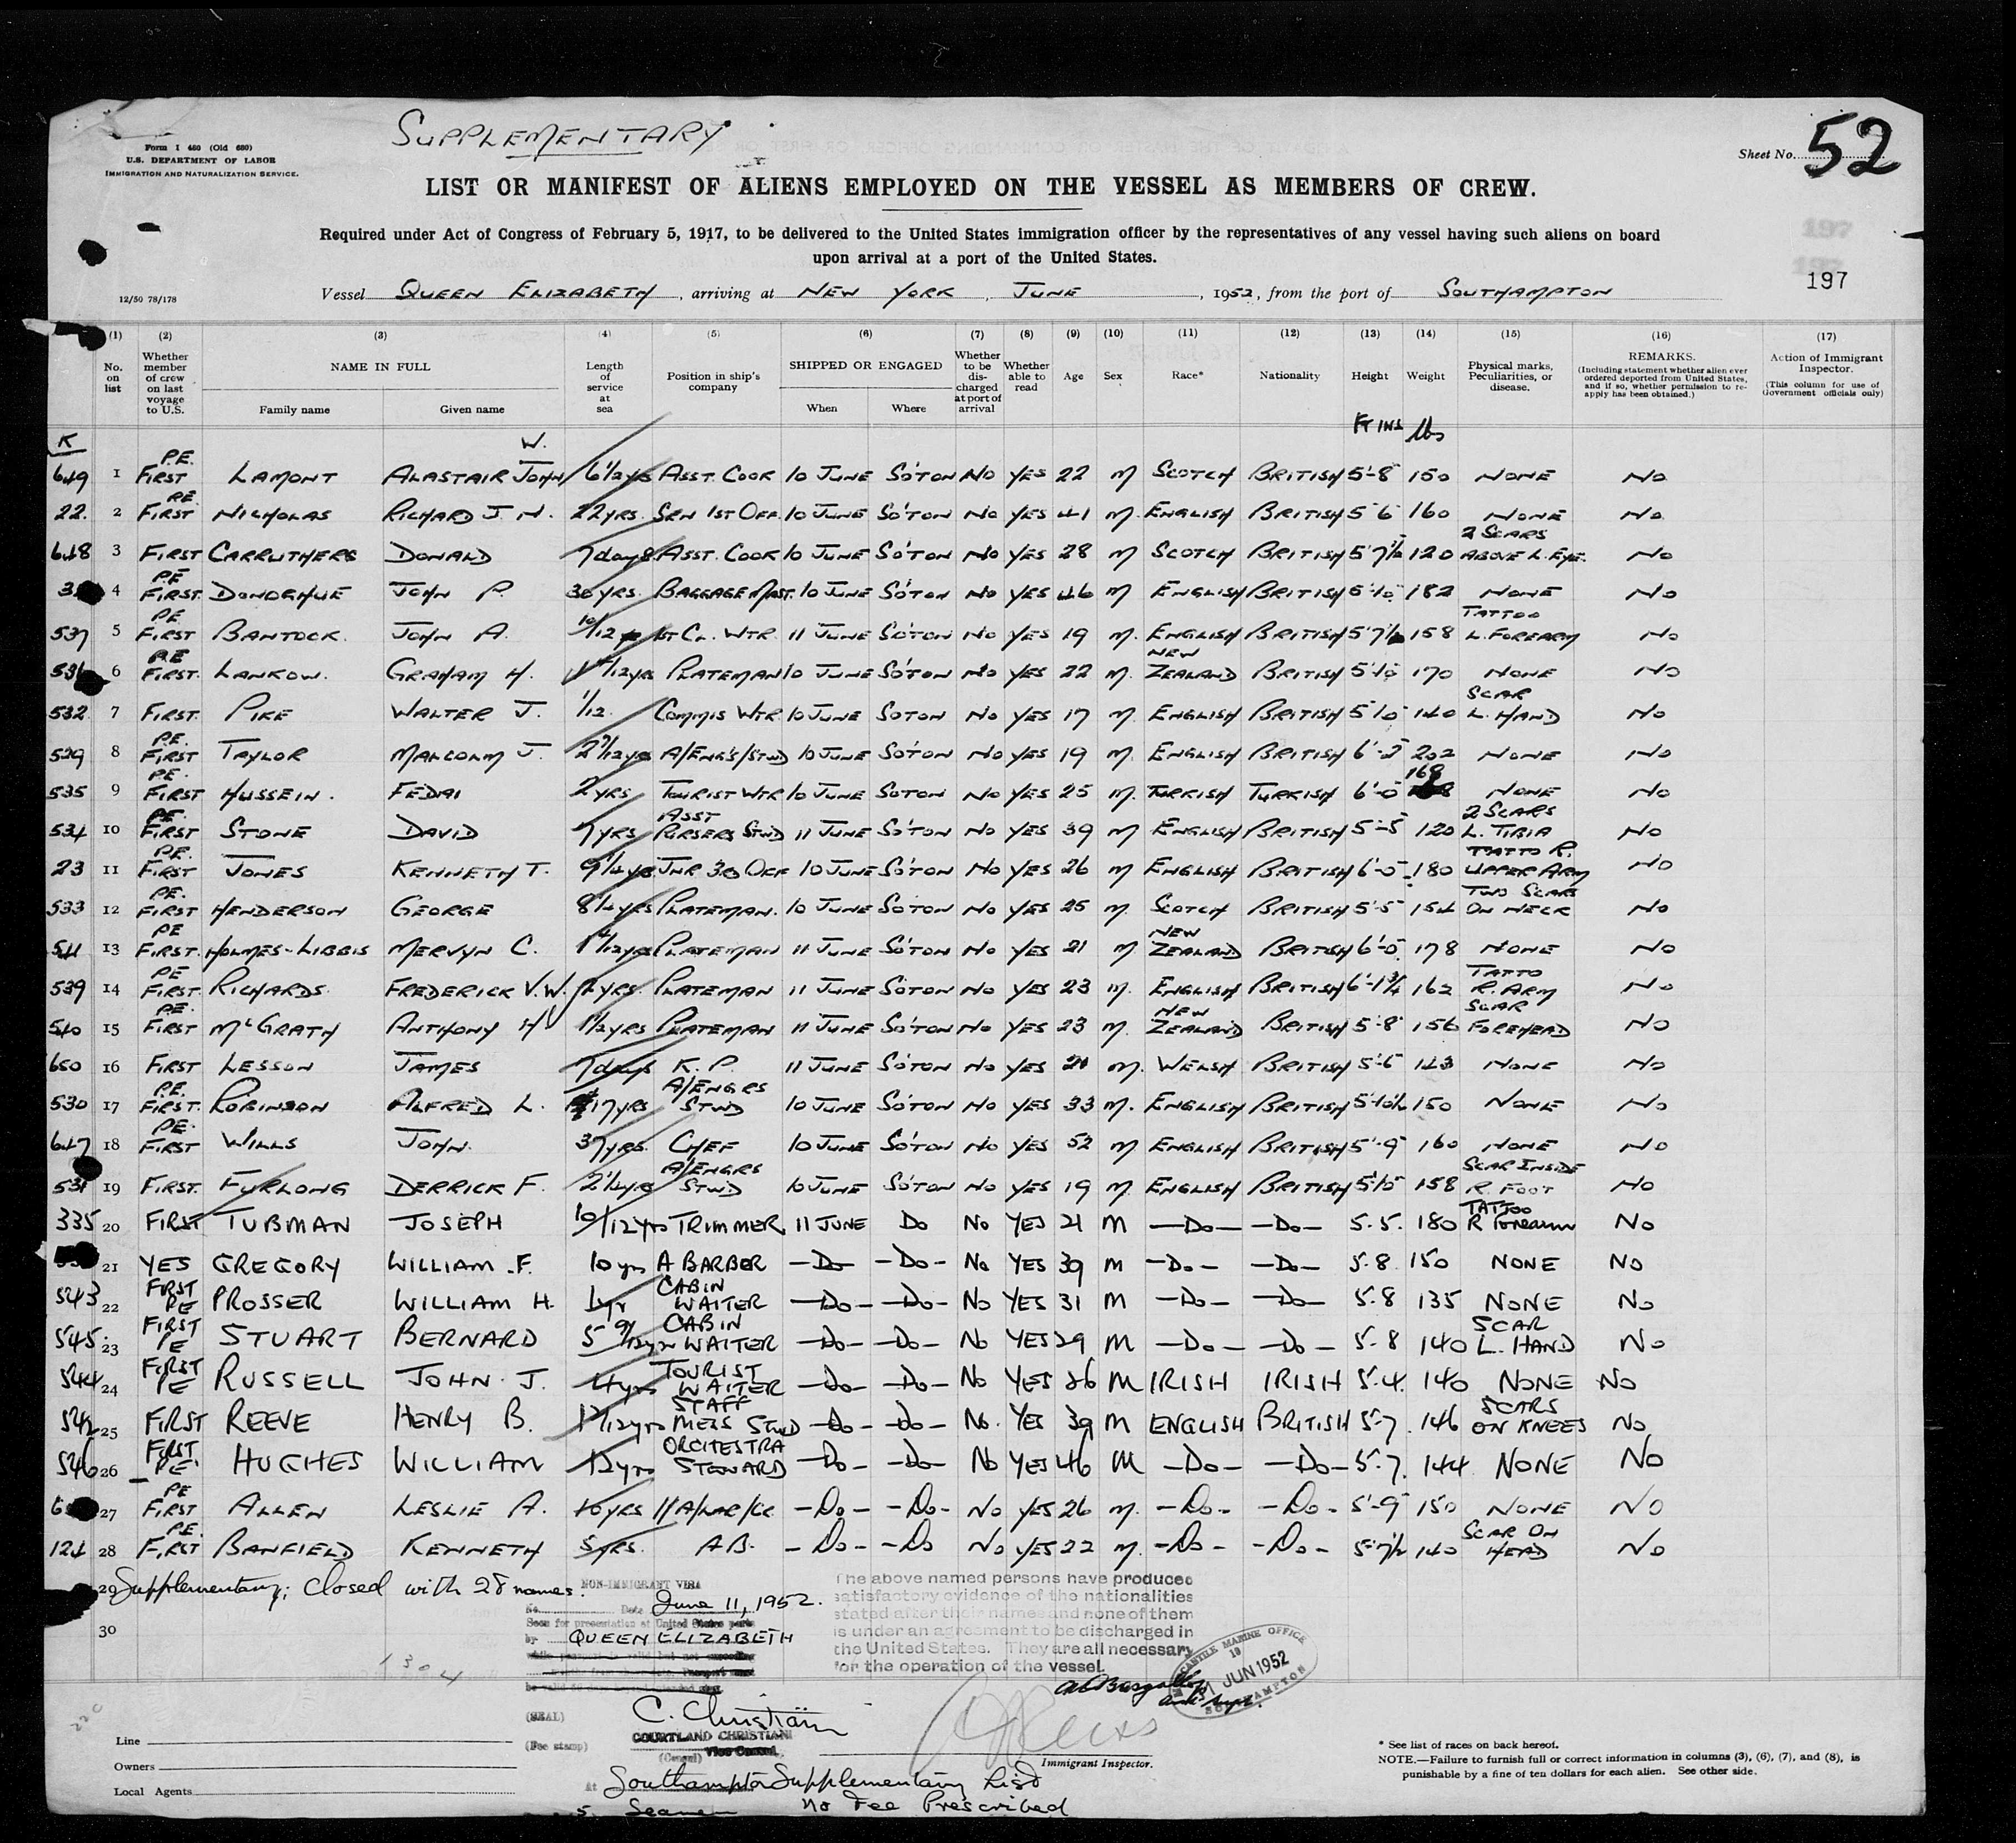 SUPPLEMENTARY
Form I 480 (Old 680)
U.S. DEPARTMENT OF LABOR
IMMIGRATION AND NATURALIZATION SERVICE.
Sheet No. 52
LIST OR MANIFEST OF ALIENS EMPLOYED ON THE VESSEL AS MEMBERS OF CREW.
Required under Act of Congress of February 5, 1917, to be delivered to the United States immigration officer by the representatives of any vessel having such aliens on board
upon arrival at a port of the United States.
197
12/50 78/178
Vessel QUEEN ELIZABETH, arriving at NEW YORK, JUNE, 1952, from the port of SOUTHAMPTON
(1) (2) (3) (4) (5) (6) (7) (8) (9) (10) (11) (12) (13) (14) (15) (16) (17)
No. on list
Whether member of crew on last voyage to U.S.
NAME IN FULL
Family name
Given name
Length of service at sea
Position in ship's company
SHIPPED OR ENGAGED
When
Where
Whether to be discharged at port of arrival
Whether able to read
Age
Sex
Race*
Nationality
Height
Weight
Physical marks, Peculiarities, or disease.
REMARKS.
(Including statement whether alien ever ordered deported from United States, and if so, whether permission to reapply has been obtained.)
Action of Immigrant Inspector.
(This column for use of Government officials only)
K FT INS lbs
649 1 P.E. FIRST LAMONT ALASTAIR JOHN W. 6 1/2 yrs ASST. COOK 10 JUNE SO'TON NO YES 22 M SCOTCH BRITISH 5'-8 150 NONE NO
22. 2 PE FIRST NICHOLAS RICHARD J. N. 22 YRS. SEN 1ST OFF. 10 JUNE SO'TON NO YES 41 M. ENGLISH BRITISH 5'6 160 NONE NO
648 3 FIRST CARRUTHERS DONALD 7 days ASST. COOK 10 JUNE SO'TON NO YES 28 M SCOTCH BRITISH 5'7 1/2 120 2 SCARS ABOVE L. EYE. NO
4 PE FIRST. DONOGHUE JOHN P. 30 YRS. BAGGAGE MAST. 10 JUNE SO'TON NO YES 46 M ENGLISH BRITISH 5'10 182 NONE NO
537 5 PE FIRST BANTOCK. JOHN A. 10/12 yr 1ST CL. WTR. 11 JUNE SO'TON NO YES 19 M. ENGLISH BRITISH 5'7 1/2 158 TATTOO L. FOREARM NO
6 PE FIRST. LANKOW. GRAHAM H. PLATEMAN 10 JUNE SO'TON NO YES 22 M. NEW ZEALAND BRITISH 5'10 170 NONE NO
532 7 FIRST. PIKE WALTER J. 1/12. COMMIS WTR 10 JUNE SOTON NO YES 17 M. ENGLISH BRITISH 5'10 140 SCAR L. HAND NO
529 8 PE. FIRST TAYLOR MALCOLM J. A/ENG'S/STWD 10 JUNE SO'TON NO YES 19 M. ENGLISH BRITISH 6'-2 202 NONE NO
535 9 PE. FIRST HUSSEIN. FEDAI 2 YRS TOURIST WTR 10 JUNE SOTON NO YES 25 M. TURKISH TURKISH 6'-0 168 NONE NO
534 10 PE. FIRST STONE DAVID 7 YRS ASST PURSERS STWD 11 JUNE SO'TON NO YES 39 M ENGLISH BRITISH 5'-5 120 2 SCARS L. TIBIA NO
23 11 PE. FIRST JONES KENNETH T. 9 1/4 yrs JNR 3RD OFF 10 JUNE SO'TON NO YES 26 M ENGLISH BRITISH 6'-0 180 TATTO R. UPPER ARM NO
533 12 PE. FIRST HENDERSON GEORGE 8 1/4 YRS PLATEMAN. 10 JUNE SO'TON NO YES 25 M. SCOTCH BRITISH 5'5 154 TWO SCARS ON NECK NO
541 13 PE FIRST. HOLMES-LIBBIS MERVYN C. PLATEMAN 11 JUNE SO'TON NO YES 21 M. NEW ZEALAND BRITISH 6'-0 178 NONE NO
539 14 PE FIRST. RICHARDS. FREDERICK V.W. YRS. PLATEMAN 11 JUNE SO'TON NO YES 23 M. ENGLISH BRITISH 6'-1 3/4 162 TATTO R. ARM NO
540 15 PE. FIRST McGRATH ANTHONY H 1 1/2 YRS PLATEMAN 11 JUNE SO'TON NO YES 23 M. NEW ZEALAND BRITISH 5'-8 156 SCAR FOREHEAD NO
650 16 FIRST LESSON JAMES 7 days K. P. 11 JUNE SO'TON NO YES 21 M. WELSH BRITISH 5'-6 143 NONE NO
530 17 P.E. FIRST. ROBINSON ALFRED L. 17 YRS A/ENGRS STWD 10 JUNE SO'TON NO YES 33 M. ENGLISH BRITISH 5'10 1/2 150 NONE NO
647 18 PE. FIRST WILLS JOHN. 37 YRS. CHEF 10 JUNE SO'TON NO YES 52 M ENGLISH BRITISH 5'-9 160 NONE NO
531 19 FIRST. FURLONG DERRICK F. 2 1/4 yrs A/ENGRS STWD 10 JUNE SO'TON NO YES 19 M. ENGLISH BRITISH 5'10 158 SCAR INSIDE R. FOOT NO
335 20 FIRST TUBMAN JOSEPH 10/12 yrs TRIMMER 11 JUNE DO NO YES 21 M —DO— —DO— 5.5. 180 TATTOO R Forearm NO
21 YES GREGORY WILLIAM .F. 10 yrs A BARBER —DO— —DO— NO YES 39 M —DO— —DO— 5.8 150 NONE NO
543 22 FIRST PE PROSSER WILLIAM H. 1 yr CABIN WAITER —DO— —DO— NO YES 31 M —DO— —DO— 5.8 135 NONE NO
545 23 FIRST PE STUART BERNARD 5 9/12 yrs CABIN WAITER —DO— —DO— NO YES 29 M —DO— —DO— 5.8 140 SCAR L. HAND NO
544 24 FIRST PE RUSSELL JOHN J. 4 yrs TOURIST WAITER —DO— —DO— NO YES 26 M IRISH IRISH 5.4. 140 NONE NO
542 25 FIRST REEVE HENRY B. STAFF MESS STWD —DO— —DO— NO. YES 39 M ENGLISH BRITISH 5.7. 146 SCARS ON KNEES NO
546 26 FIRST. PE HUGHES WILLIAM 12 yrs ORCHESTRA STEWARD —DO— —DO— NO YES 46 M —DO— —DO— 5.7. 144 NONE NO
27 PE FIRST ALLEN LESLIE A. 10 YRS —DO— —DO— NO YES 26 M. —DO— —DO— 5'-9 150 NONE NO
124 28 P.E. FIRST BANFIELD KENNETH 5 YRS. A.B. —DO— —DO NO YES 22 M. —DO— —DO— 5'-7 1/2 140 SCAR ON HEAD NO
29 Supplementary; Closed with 28 names.
30
NON-IMMIGRANT VISA
No. Date June 11, 1952.
Seen for presentation at United States ports
by QUEEN ELIZABETH
The above named persons have produced
satisfactory evidence of the nationalities
stated after their names and none of them
is under an agreement to be discharged in
the United States. They are all necessary
for the operation of the vessel.
MERCANTILE MARINE OFFICE
11 JUN 1952
SOUTHAMPTON
1304
(SEAL) C. Christiani
COURTLAND CHRISTIANI
(Fee stamp)
(Consul) Vice Consul
At Southampton Supplementary List
Seamen No Fee Prescribed
Immigrant Inspector.
Line
Owners
Local Agents
* See list of races on back hereof.
NOTE.—Failure to furnish full or correct information in columns (3), (6), (7), and (8), is
punishable by a fine of ten dollars for each alien. See other side.